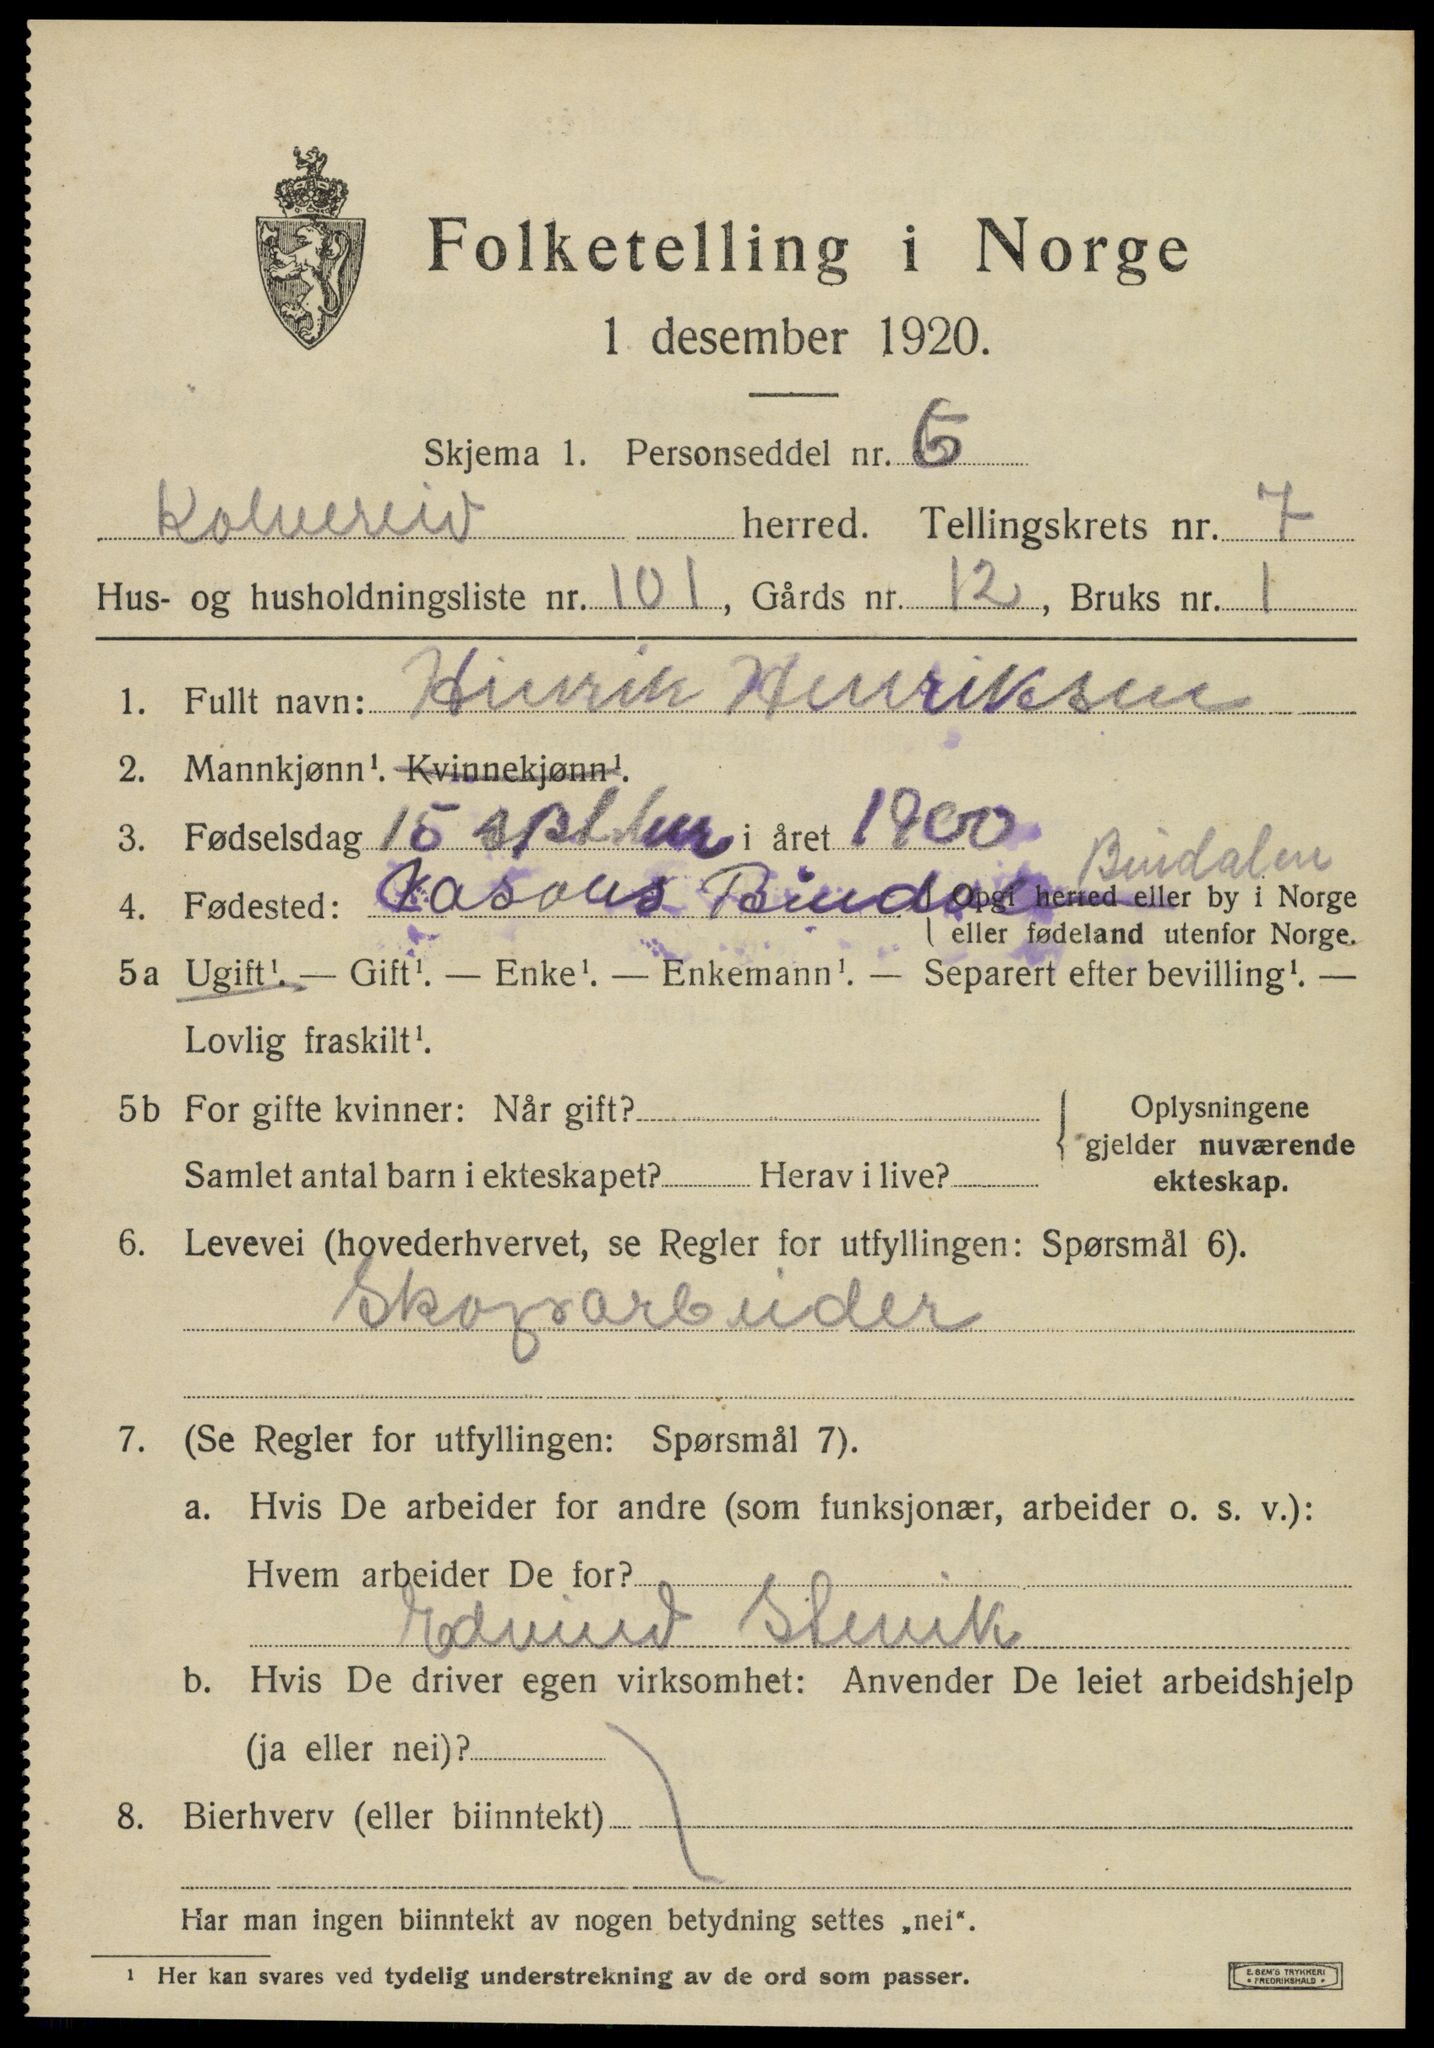 Folketelling i Norge
1 desember 1920.
Skjema 1. Personseddel nr. 6
Kolvereid herred. Tellingskrets nr. 7
Hus- og husholdningsliste nr. 101, Gårds nr. 12, Bruks nr. 1
1. Fullt navn: Hinrik Henriksen
2. Mannkjønn¹. Kvinnekjønn¹.
3. Fødselsdag 15 i året 1900
Bindalen
4. Fødested: { Opgi herred eller by i Norge
eller fødeland utenfor Norge.
5a Ugift¹. — Gift¹. — Enke¹. — Enkemann¹. — Separert efter bevilling¹. —
Lovlig fraskilt¹.
5b For gifte kvinner: Når gift? { Oplysningene
gjelder nuværende
Samlet antal barn i ekteskapet? Herav i live? ekteskap.
6. Levevei (hovederhvervet, se Regler for utfyllingen: Spørsmål 6).
Skogsarbeider
7. (Se Regler for utfyllingen: Spørsmål 7).
a. Hvis De arbeider for andre (som funksjonær, arbeider o. s. v.):
Hvem arbeider De for?
b. Hvis De driver egen virksomhet: Anvender De leiet arbeidshjelp
(ja eller nei)?
8. Bierhverv (eller biinntekt)
Har man ingen biinntekt av nogen betydning settes „nei“.
¹ Her kan svares ved tydelig understrekning av de ord som passer.
E. SEM'S TRYKKERI
• FREDRIKSHALD •